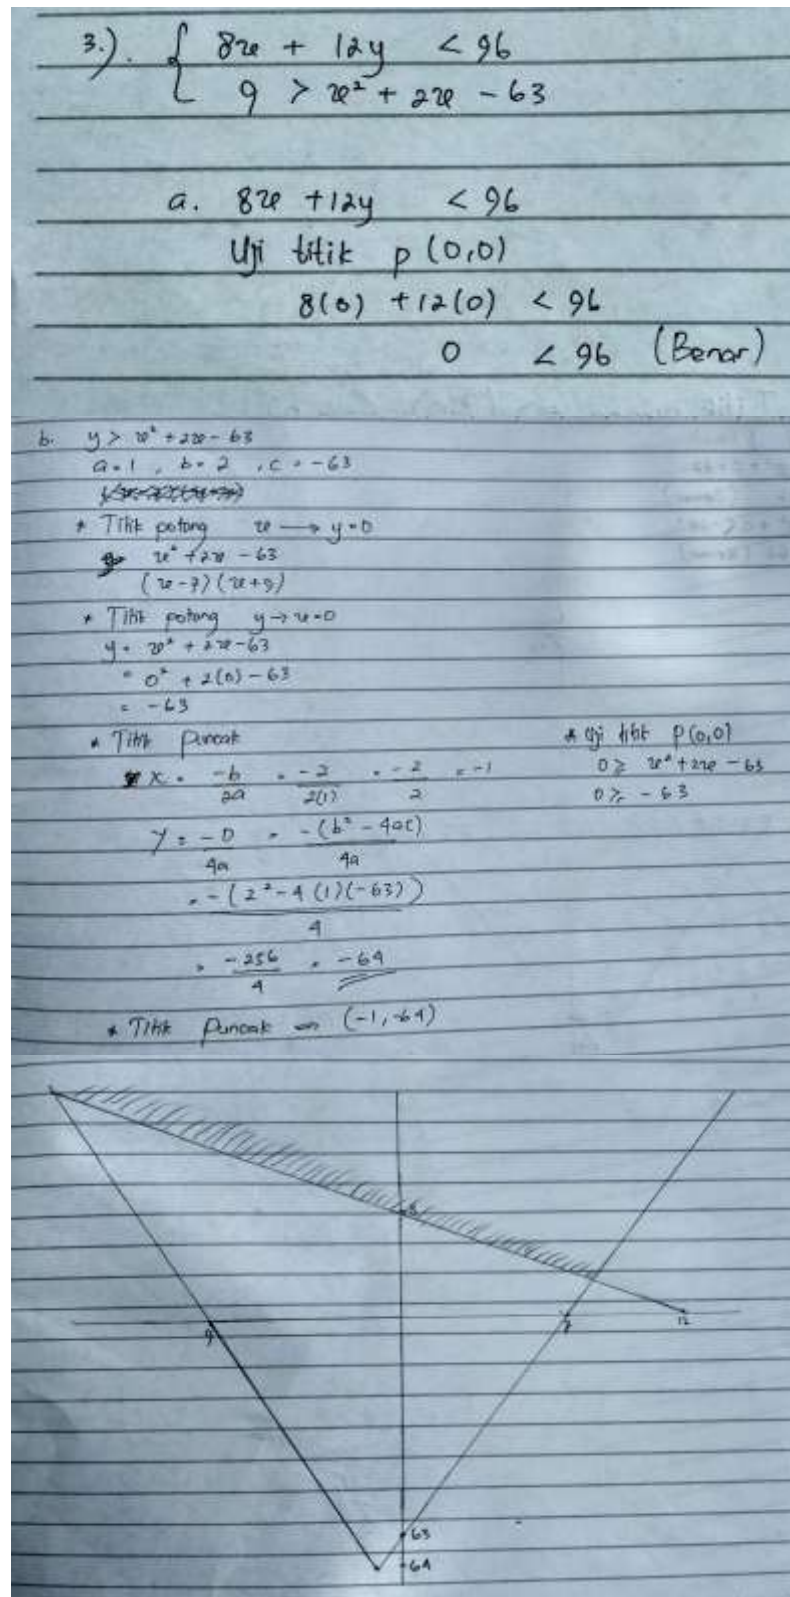 3.). { 8x + 12y < 96
9 > x² + 2x - 63
a. 8x + 12y < 96
Uji titik p (0,0)
8(0) + 12(0) < 96
0 < 96 (Benar)
b. y > x² + 2x - 63
a = 1 , b = 2 , c = -63
* Titik potong x → y=0
x² + 2x - 63
(x-7)(x+9)
* Titik potong y → x=0
y = x² + 2x - 63
= 0² + 2(0) - 63
= -63
* Titik Puncak
x = -b/2a = -2/2(1) = -2/2 = -1
y = -D/4a = -(b² - 4ac)/4a
= -(2² - 4(1)(-63))/4
= -256/4 = -64
* Titik Puncak = (-1, -64)
* Uji titik P(0,0)
0 ≥ x² + 2x - 63
0 ≥ -63
8
9 7 12
63
64